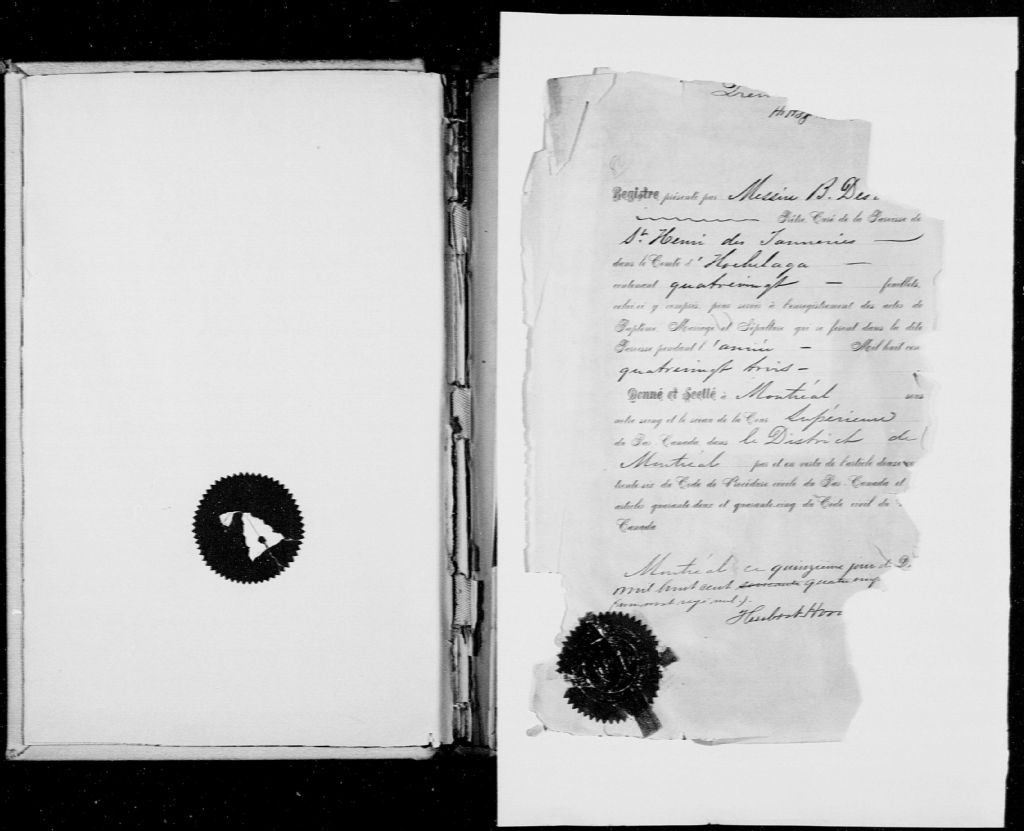 Registre présenté par Messire B. Des
Prêtre, Curé de la Paroisse de
St. Henri des Tanneries —
dans le Comté d' Hochelaga —
contenant quatrevingt — feuillets,
celui-ci y compris, pour servir à l'enregistrement des actes de
Baptême, Mariage et Sépulture qui se feront dans la dite
Paroisse pendant l' année — Mil huit cent
quatrevingt trois —
Donné et Scellé à Montréal sous
notre seing et le sceau de la Cour Supérieure
du Bas-Canada dans le District de
Montréal par et en vertu de l'article douze
trente-six du Code de Procédure civile du Bas-Canada et
articles quarante-deux et quarante-cinq du Code civil du
Canada
Montréal ce quinzième jour de D
mil huit cent quatre vingt
(un mot rayé nul).